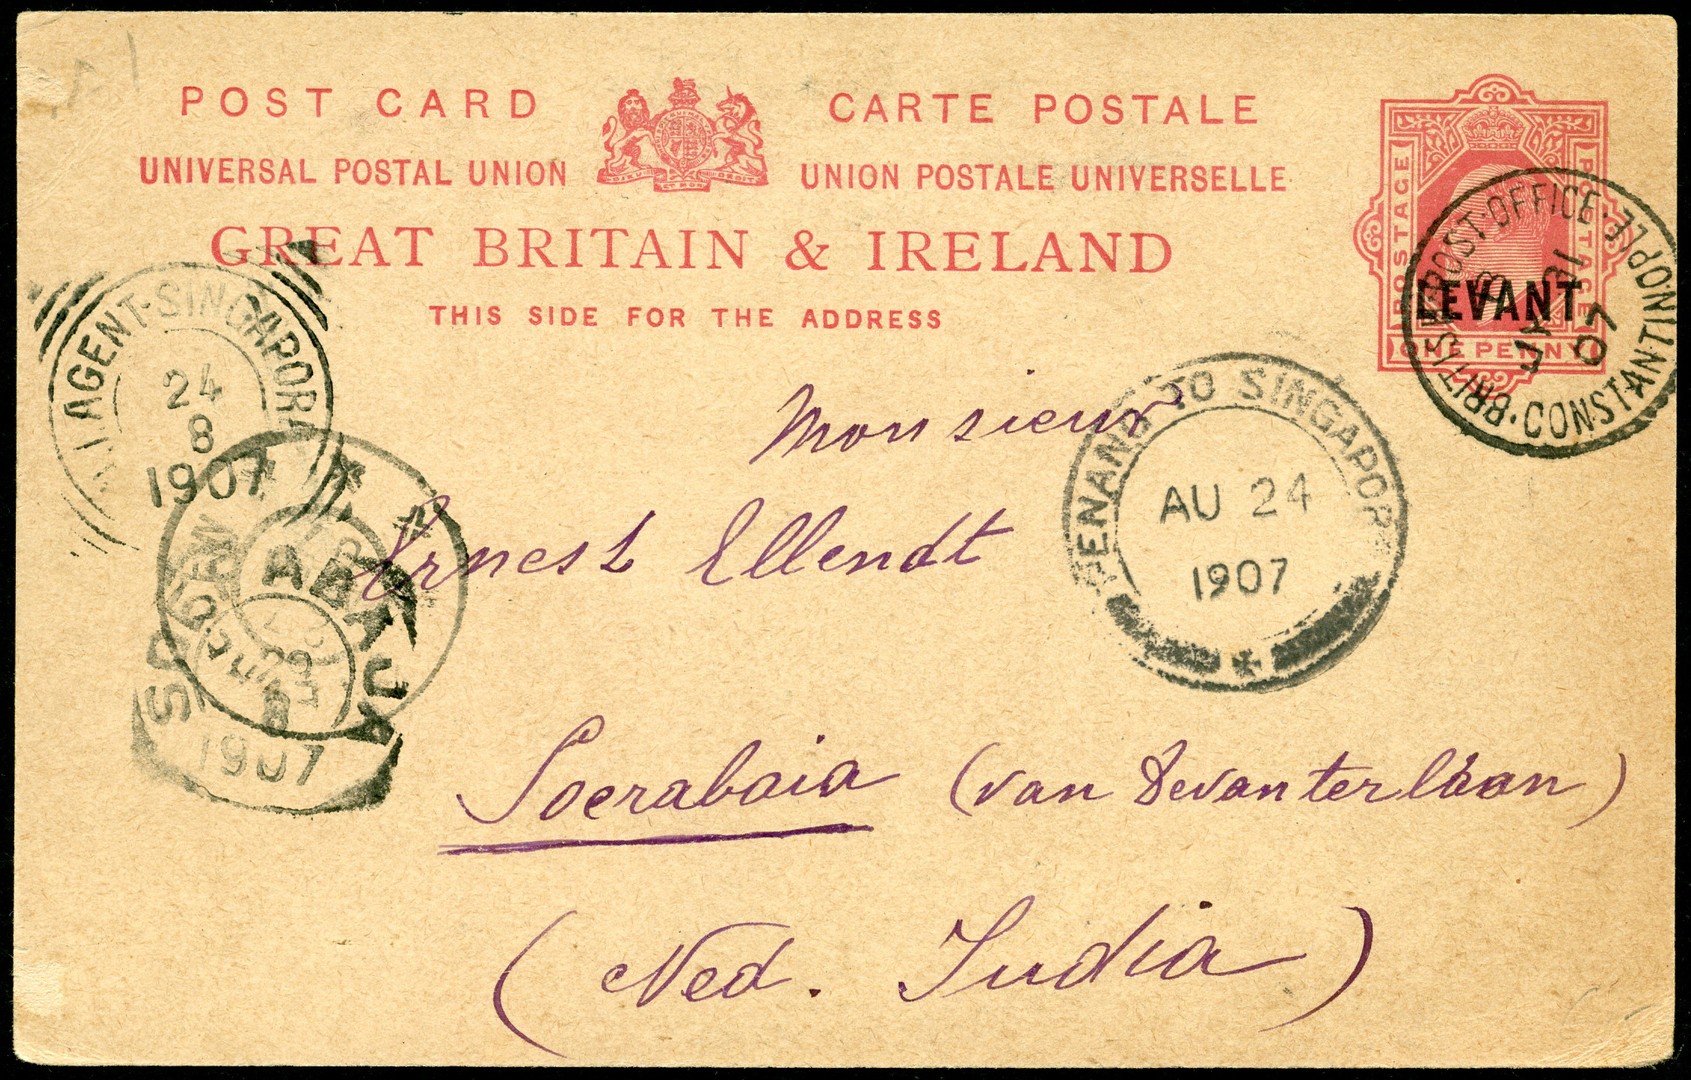 POST CARD CARTE POSTALE
UNIVERSAL POSTAL UNION UNION POSTALE UNIVERSELLE
GREAT BRITAIN & IRELAND
THIS SIDE FOR THE ADDRESS
POSTAGE POSTAGE
ONE PENNY
LEVANT
BRITISH POST OFFICE · CONSTANTINOPLE ·
JY 31
07
AGENT · SINGAPORE
24
8
1907
PENANG TO SINGAPORE
AU 24
1907
SOERABAJA
1907
Monsieur
Ernest Ellendt
Soerabaia (van Devanterláan)
(Ned. India)